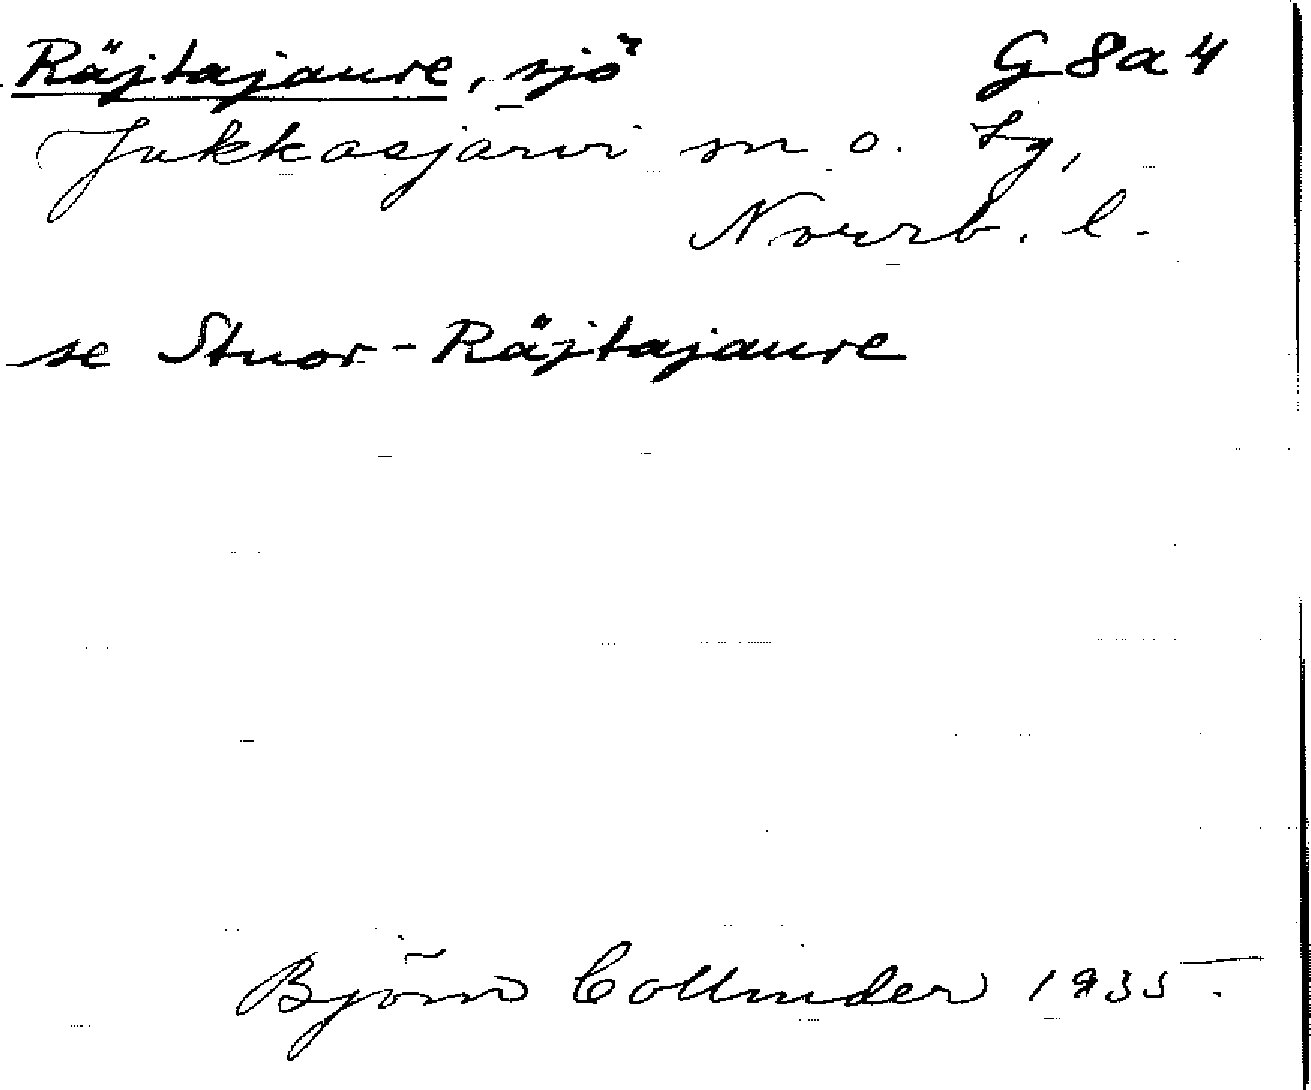 Räjtajaure, sjö G 8a 4
Jukkasjärvi sn o. tg,
Norrb. l.
se Stuor-Räjtajaure
Björn Collinder 1935.